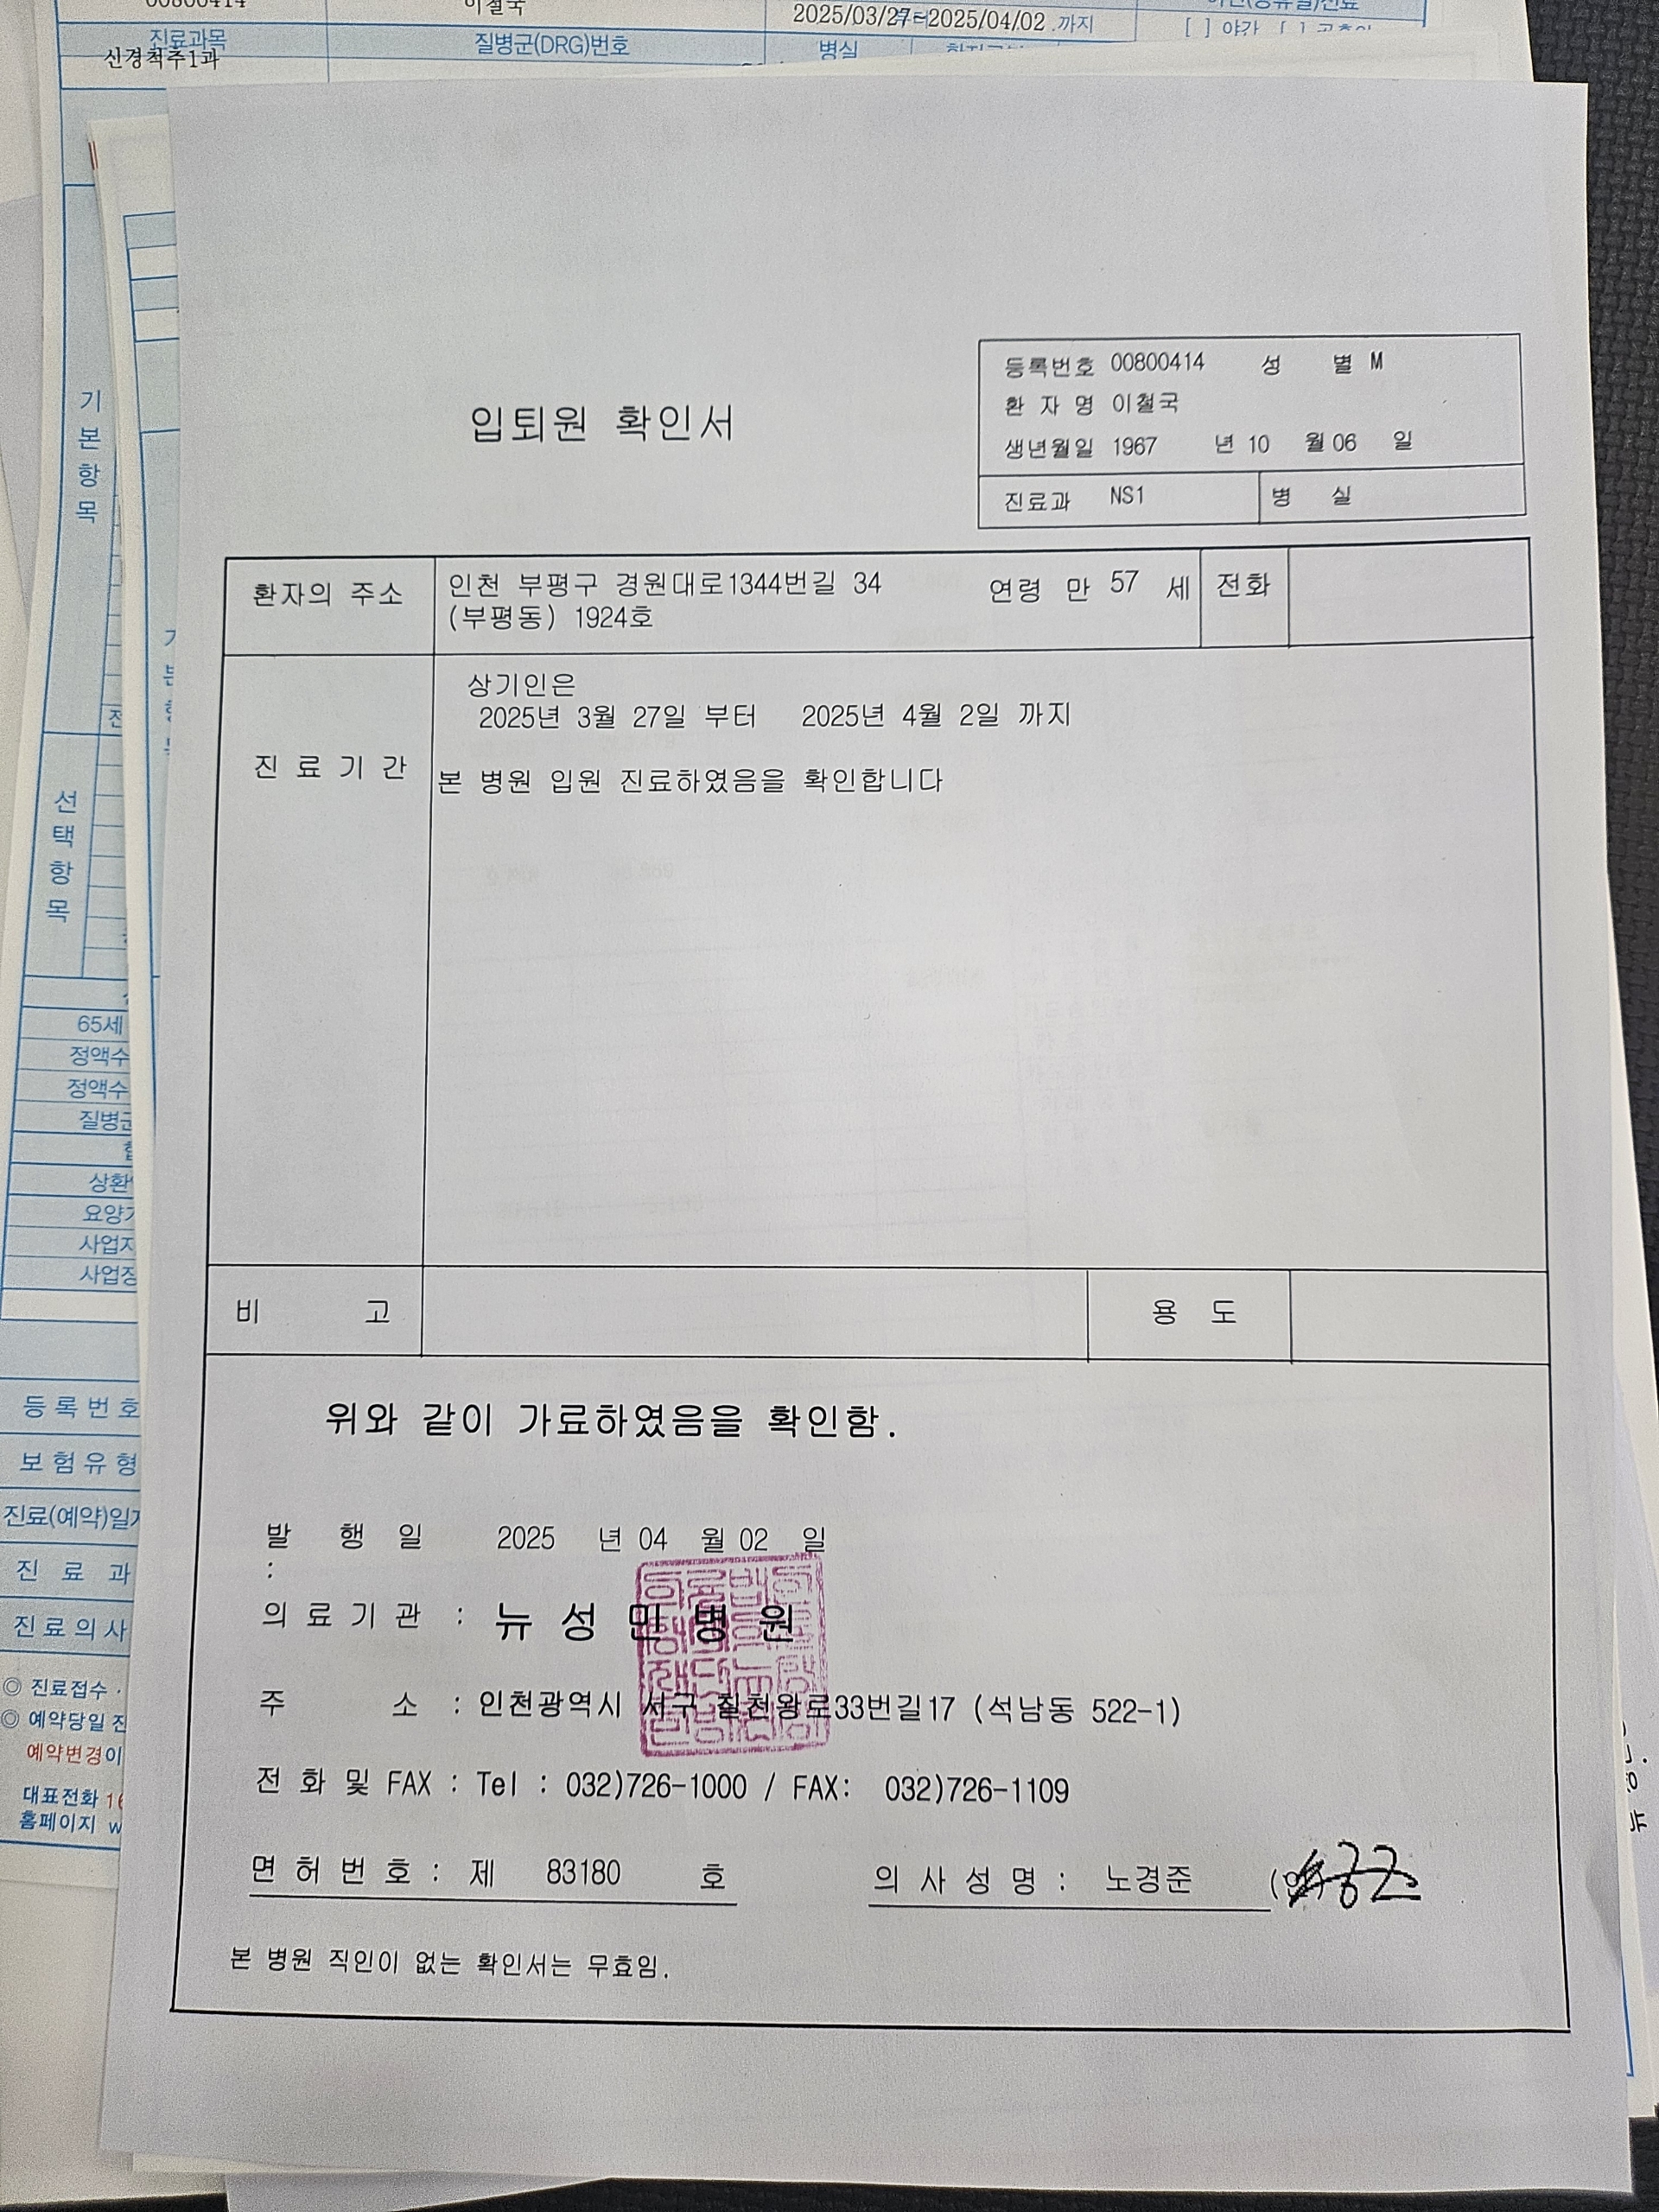 00800414
이철국
2025/03/27부터2025/04/02.까지
[ ] 야간 [ ]
진료과목
질병군(DRG)번호
병실
신경척추1과
기본항목
선택항목
65세
정액수
정액수
질병군
상환
요양기
사업자
사업장
등록번호
보험유형
진료(예약)일
진 료 과
진료의사
◎ 진료접수
◎ 예약당일 진
예약변경이
대표전화 16
홈페이지 w
입퇴원 확인서
등록번호 00800414 성 별 M
환 자 명 이철국
생년월일 1967 년 10 월 06 일
진료과 NS1 병 실
환자의 주소 인천 부평구 경원대로1344번길 34 연령 만 57 세 전화
(부평동) 1924호
상기인은
2025년 3월 27일 부터 2025년 4월 2일 까지
진 료 기 간
본 병원 입원 진료하였음을 확인합니다
비 고 용 도
위와 같이 가료하였음을 확인함.
발 행 일 2025 년 04 월 02 일
:
의 료 기 관 : 뉴 성 민 병 원
주 소 : 인천광역시 서구 칠천왕로33번길17 (석남동 522-1)
전 화 및 FAX : Tel : 032)726-1000 / FAX: 032)726-1109
면 허 번 호 : 제 83180 호 의 사 성 명 : 노경준 (인)
본 병원 직인이 없는 확인서는 무효임.